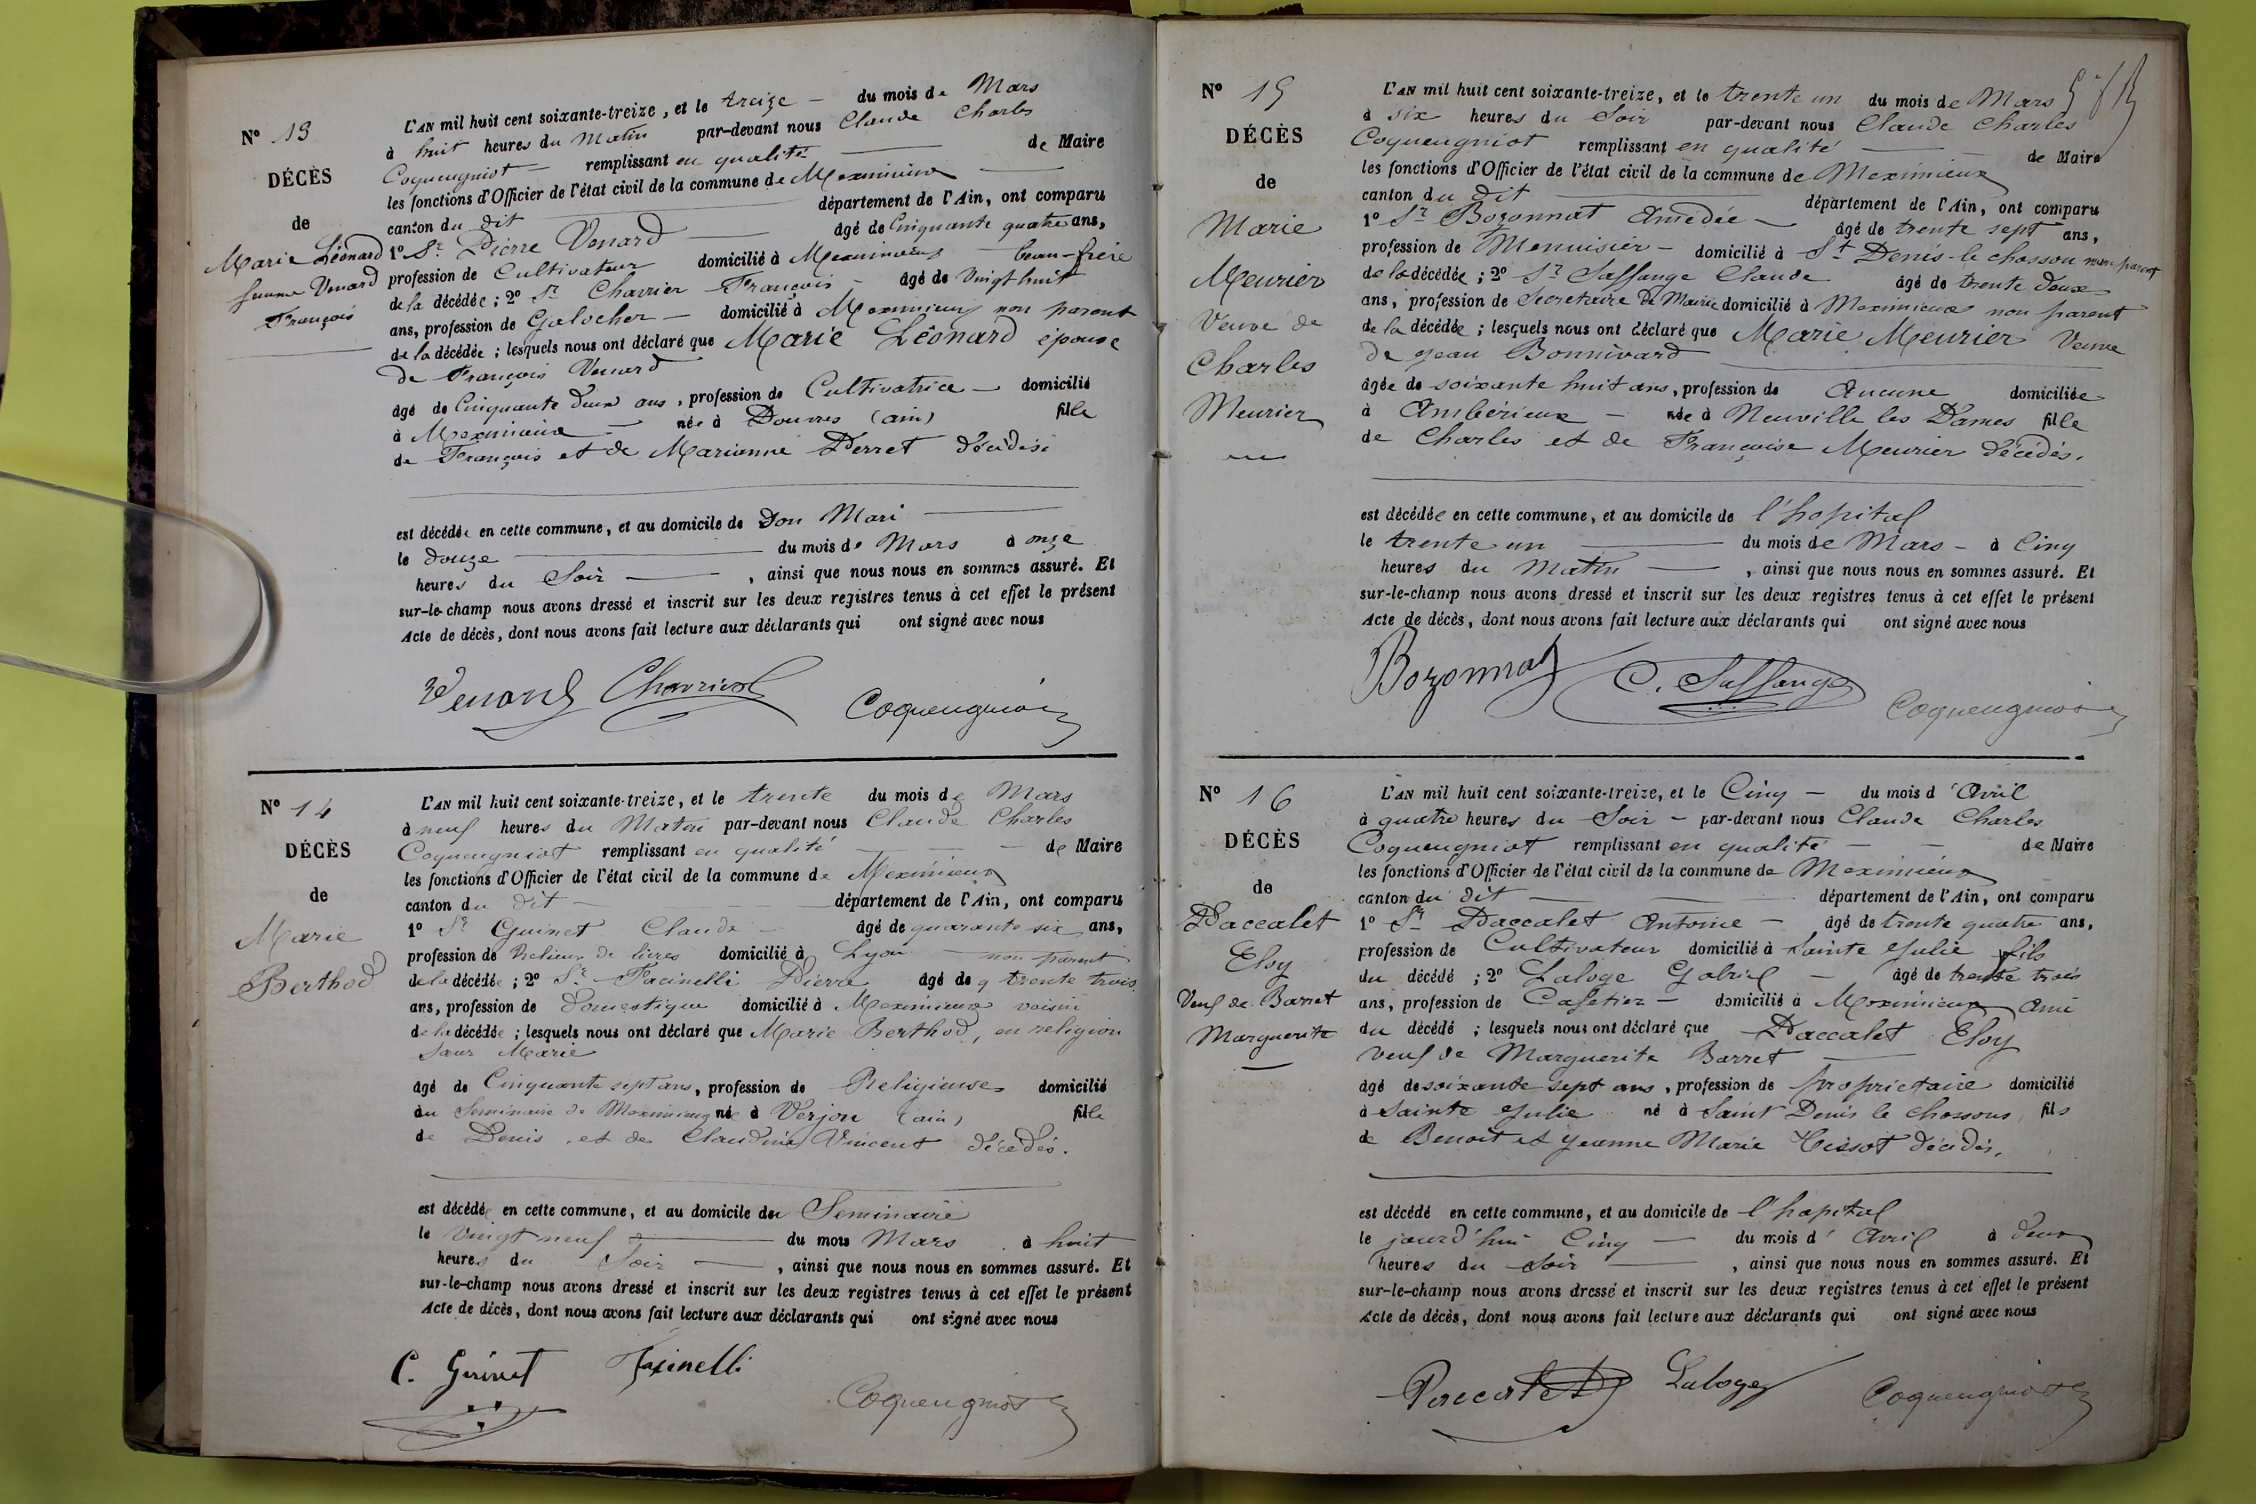 N° 13
DÉCÈS
de
Marie Léonard
femme Venard
François
L'AN mil huit cent soixante-treize, et le treize – du mois de Mars
à huit heures du Matin par-devant nous Claude Charles
Coqueugniot – remplissant en qualité — de Maire
les fonctions d'Officier de l'état civil de la commune de Meximieux —
canton du dit — département de l'Ain, ont comparu
1° Sr Pierre Venard — âgé de Cinquante quatre ans,
profession de Cultivateur domicilié à Meximieux — beau-frère
de la décédée ; 2° Sr Charrier François – âgé de Vingt huit
ans, profession de Galocher — domicilié à Meximieux non parent
de la décédée ; lesquels nous ont déclaré que Marie Léonard épouse
de François Venard
âgé de Cinquante deux ans, profession de Cultivatrice — domicilié
à Meximieux — née à Douvres (ain) fille
de François et de Marianne Perret décédés
est décédée en cette commune, et au domicile de Son Mari —
le douze — du mois de Mars à onze
heures du Soir —, ainsi que nous nous en sommes assuré. Et
sur-le-champ nous avons dressé et inscrit sur les deux registres tenus à cet effet le présent
Acte de décès, dont nous avons fait lecture aux déclarants qui ont signé avec nous
Venard Charrier
Coqueugniot
N° 14
DÉCÈS
de
Marie
Berthod
L'AN mil huit cent soixante-treize, et le trente du mois de Mars
à neuf heures du Matin par-devant nous Claude Charles
Coqueugniot remplissant en qualité — de Maire
les fonctions d'Officier de l'état civil de la commune de Meximieux
canton du dit — département de l'Ain, ont comparu
1° Sr Guinet Claude – âgé de quarante six ans,
profession de Relieur de livres domicilié à Lyon — non parent
de la décédée ; 2° Sr Facinelli Pierre âgé de trente trois
ans, profession de domestique domicilié à Meximieux voisin
de la décédée ; lesquels nous ont déclaré que Marie Berthod, en religion
Sœur Marie
âgé de Cinquante sept ans, profession de Religieuse domicilié
au Seminaire de Meximieux née à Verjon (ain) fille
de Denis et de Claudine Vincent décédés.
est décédée en cette commune, et au domicile du Seminaire
le Vingt neuf — du mois Mars à huit
heures du Soir —, ainsi que nous nous en sommes assuré. Et
sur-le-champ nous avons dressé et inscrit sur les deux registres tenus à cet effet le présent
Acte de décès, dont nous avons fait lecture aux déclarants qui ont signé avec nous
C. Guinet Facinelli
Coqueugniot
N° 15
DÉCÈS
de
Marie
Meurier
Veuve de
Charles
Meurier
L'AN mil huit cent soixante-treize, et le trente un du mois de Mars
à six heures du Soir par-devant nous Claude Charles
Coqueugniot remplissant en qualité — de Maire
les fonctions d'Officier de l'état civil de la commune de Meximieux
canton du dit — département de l'Ain, ont comparu
1° Sr Bozonnat Amédée – âgé de trente sept ans,
profession de Menuisier – domicilié à St Denis-le chosson non parent
de la décédée ; 2° Sr Saffange Claude âgé de trente deux
ans, profession de Secretaire de Mairie domicilié à Meximieux non parent
de la décédée ; lesquels nous ont déclaré que Marie Meurier Veuve
de Jean Bonnivard —
âgée de soixante huit ans, profession de Aucune domiciliée
à Ambérieux — née à Neuville les Dames fille
de Charles et de Françoise Meurier décédés.
est décédée en cette commune, et au domicile de l'hopital
le trente un — du mois de Mars – à Cinq
heures du Matin —, ainsi que nous nous en sommes assuré. Et
sur-le-champ nous avons dressé et inscrit sur les deux registres tenus à cet effet le présent
Acte de décès, dont nous avons fait lecture aux déclarants qui ont signé avec nous
Bozonnat C. Saffange
Coqueugniot
N° 16
DÉCÈS
de
Daccalet
Eloy
Veuf de Barret
Marguerite
L'AN mil huit cent soixante-treize, et le Cinq – du mois d'Avril
à quatre heures du Soir – par-devant nous Claude Charles
Coqueugniot remplissant en qualité — de Maire
les fonctions d'Officier de l'état civil de la commune de Meximieux
canton du dit — département de l'Ain, ont comparu
1° Sr Daccalet Antoine – âgé de trente quatre ans,
profession de Cultivateur domicilié à Sainte Julie fils
du décédé ; 2° Laloge Gabriel – âgé de trente trois
ans, profession de Cafetier – domicilié à Meximieux Ami
du décédé ; lesquels nous ont déclaré que Daccalet Eloy
veuf de Marguerite Barret —
âgé de soixante sept ans, profession de proprietaire domicilié
à Sainte Julie né à Saint Denis le chossons, fils
de Benoit et Jeanne Marie Tissot décédés,
est décédé en cette commune, et au domicile de l'hopital
le jourd'hui Cinq — du mois d'Avril à deux
heures du Soir —, ainsi que nous nous en sommes assuré. Et
sur-le-champ nous avons dressé et inscrit sur les deux registres tenus à cet effet le présent
Acte de décès, dont nous avons fait lecture aux déclarants qui ont signé avec nous
Laloge
Coqueugniot